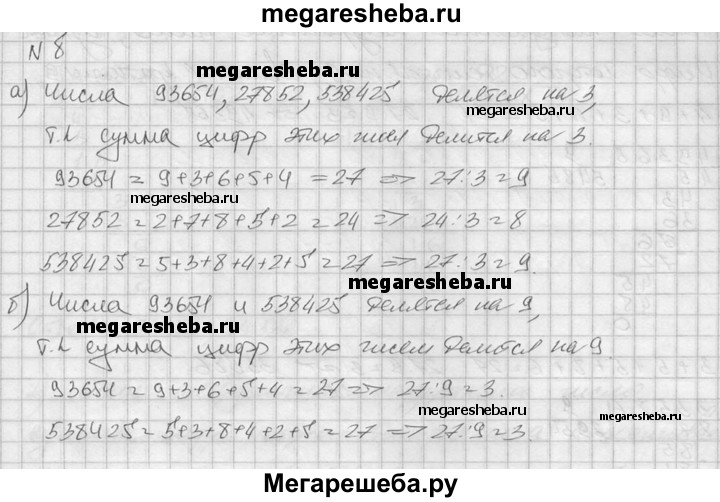 megaresheba.ru
N 8
megaresheba.ru
а) Числа 93654, 27852, 538425 делятся на 3,
megaresheba.ru
т.к сумма цифр этих чисел делится на 3.
93654 = 9+3+6+5+4 = 27 => 27:3=9
megaresheba.ru
27852 = 2+7+8+5+2 = 24 => 24:3=8
538425 = 5+3+8+4+2+5 = 27 => 27:3=9.
megaresheba.ru
б) Числа 93654 и 538425 делятся на 9,
megaresheba.ru
т.к сумма цифр этих чисел делится на 9.
93654 = 9+3+6+5+4 = 27 => 27:9=3.
megaresheba.ru
megaresheba.ru
538425 = 5+3+8+4+2+5 = 27 => 27:9=3
Мегарешеба.ру